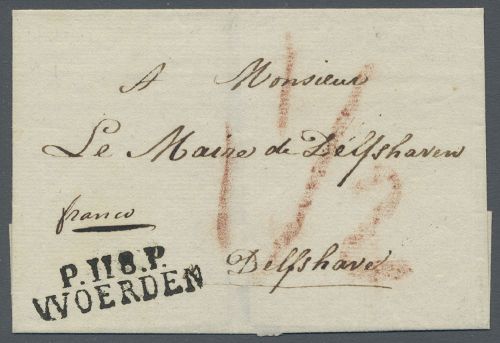 A Monsieur
Le Maire de Delfshaven
franco
Delfshave
P.118.P.
WOERDEN
1/2